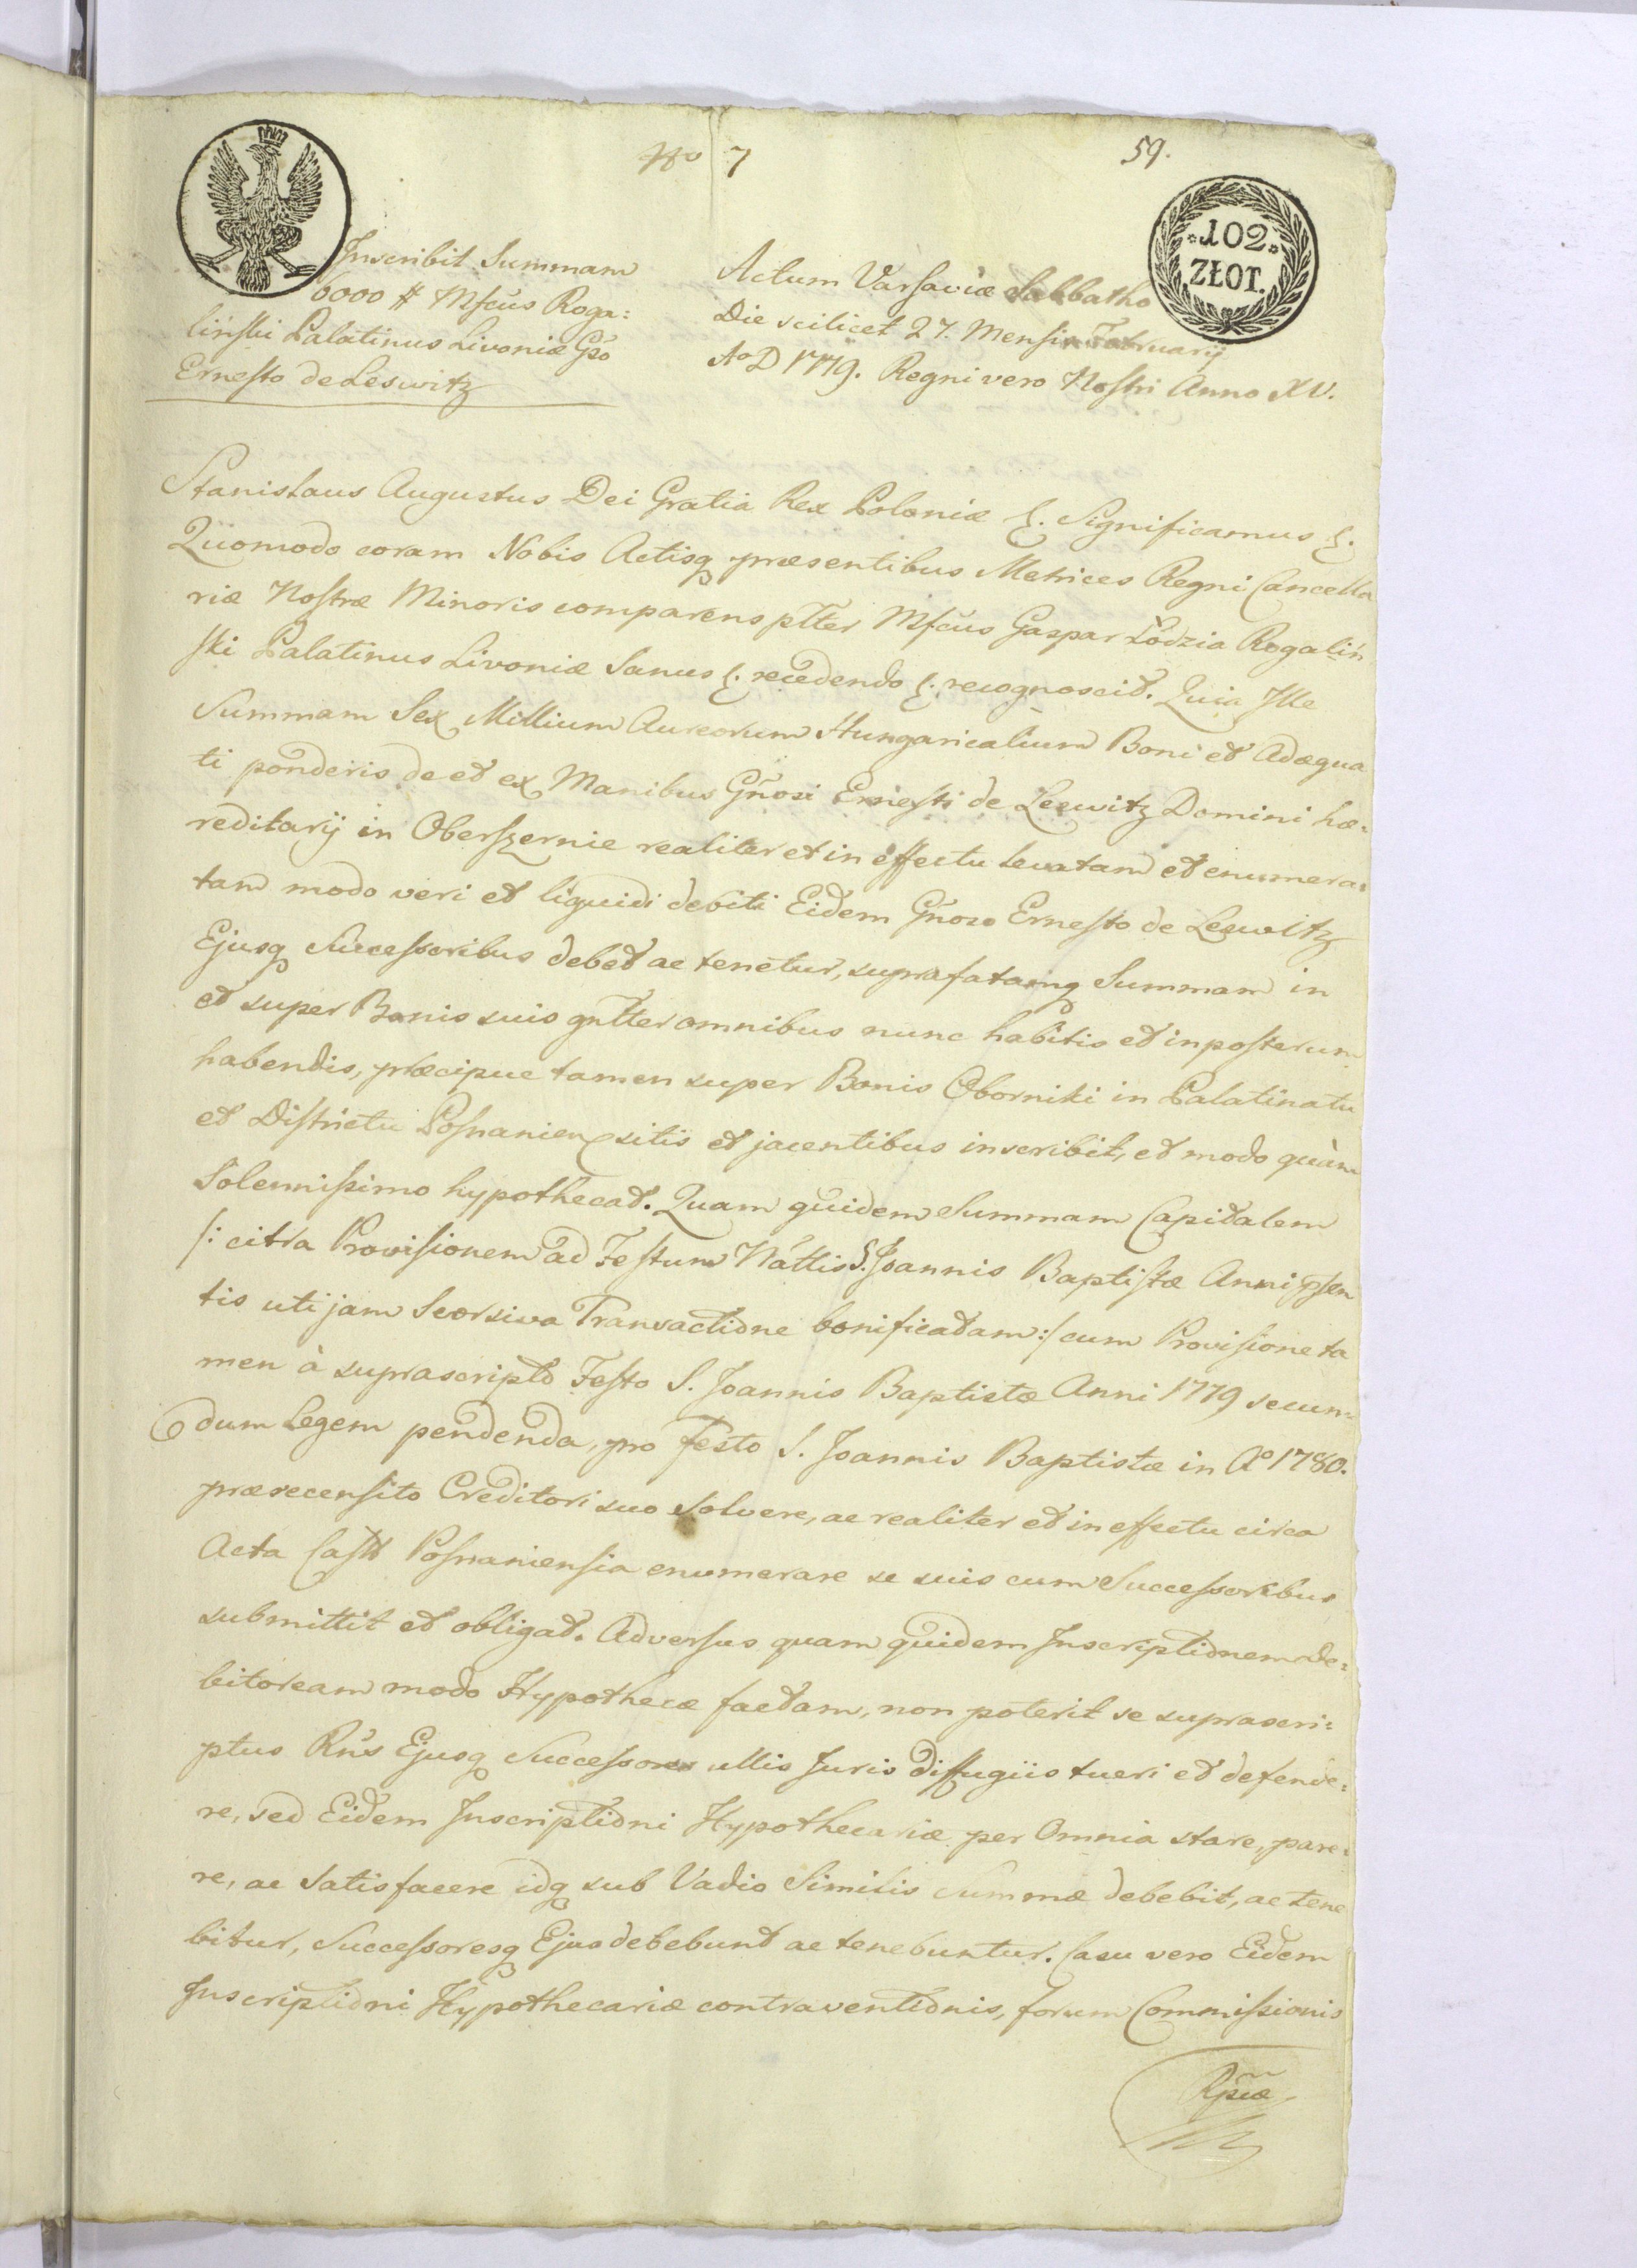 No 7
59.
102
ZŁOT.
Inscribit Summam
6000 # Mfcus Roga=
liński Palatinus Livoniæ Gso
Ernesto de Leswitz
Actum Varsaviæ Sabbatho
Die scilicet 27. Mensis February
Ao D 1779. Regni vero Nostri Anno XV.
Stanislaus Augustus Dei Gratia Rex Poloniæ &. Significamus &.
Quomodo coram Nobis Actisq præsentibus Metrices Regni Cancella
riæ Nostræ Minoris comparens plter Mfcus Gaspar Łodzia Rogaliń
ski Palatinus Livoniæ Sanus &. recedendo &. recognoscit. Quia Ille
Summam Sex Millium Aureorum Hungaricalium Boni et Adæqua
ti ponderis de et ex Manibus Gnosi Ernesti de Leswitz Domini hæ=
reditarij in Oberszernie realiter et in effectu levatam et enumera=
tam modo veri et liquidi debiti Eidem Gnoso Ernesto de Leswitz
Ejusq Successoribus debet ac tenetur, suprafatamq Summam in
et super Bonis suis gnlter omnibus nunc habitis et inposterum
habendis, præcipue tamen super Bonis Oborniki in Palatinatu
et Districtu Posnanien sitis et jacentibus inscribit, et modo quàm
Solennissimo hypothecat. Quam quidem Summam Capitalem
/: citra Provisionem ad Festum Nattis S. Joannis Baptistæ Anni psen
tis uti jam Seorsiva Transactione bonificatam :/ cum Provisione ta
men à suprascripto Festo S. Joannis Baptistæ Anni 1779 secun=
dum Legem pendenda, pro festo S. Joannis Baptistæ in Ao 1780.
præsecensito Creditori suo solvere, ac realiter et in effectu circa
Acta Castr Posnaniensia enumerare se suis cum Successoribus
submittit et obligat. Adversus quam quidem Inscriptionem de=
bitoream modo Hypothecæ factam, non poterit se suprascri=
ptus Rns Ejusq Successores ullis Juris diffugiis tueri et defende=
re, sed Eidem Inscriptioni Hypothecariæ per Omnia stare, pare=
re, ac satisfacere idq sub Vadio Similis Summæ debebit, ac tene
bitur, Successoresq Ejus debebunt ac tenebuntur. Casu vero Eidem
Inscriptioni Hypothecariæ contraventionis, forum Commissionis
Rpcæ